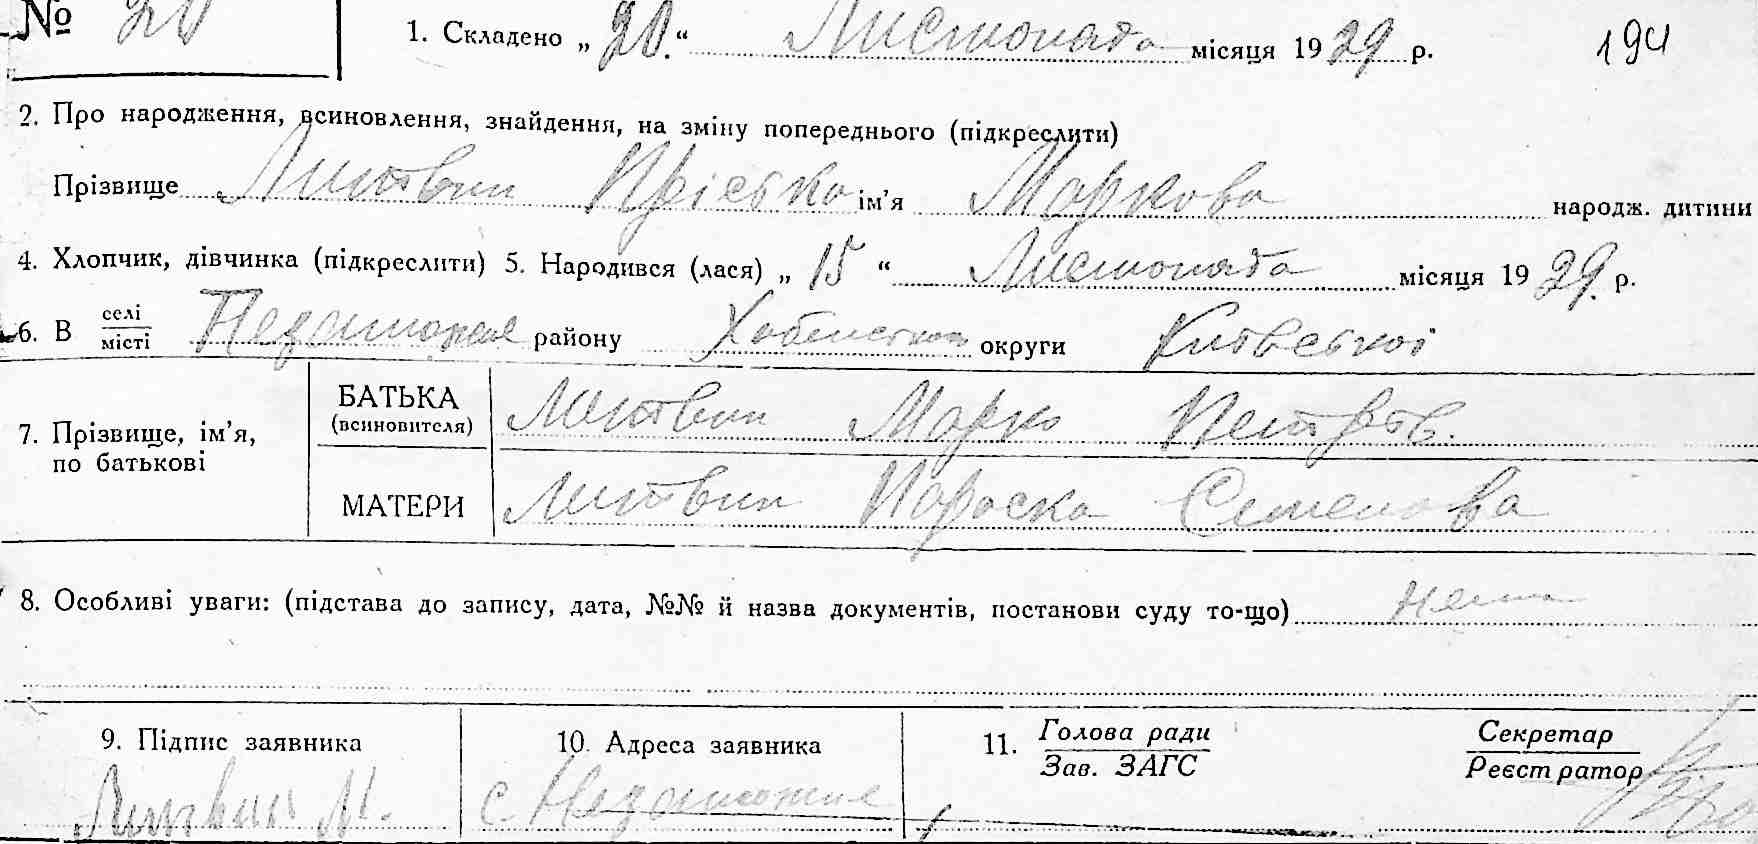 № 20
1. Складено „ 20. “ Листопада місяця 1929 р. 194
2. Про народження, всиновлення, знайдення, на зміну попереднього (підкреслити)
Прізвище Литвин Пріська ім’я Маркова народж. дитини
4. Хлопчик, дівчинка (підкреслити) 5. Народився (лася) „ 15 “ Листопада місяця 1929. р.
6. В селі місті району округи Київської
7. Прізвище, ім’я, по батькові
БАТЬКА (всиновителя) Литвин Марко Петров.
МАТЕРИ Литвин Параска Семенова
8. Особливі уваги: (підстава до запису, дата, №№ й назва документів, постанови суду то-що) нема
9. Підпис заявника 10. Адреса заявника 11. Голова ради Зав. ЗАГС Секретар Реєстратор
Литвин М. с.